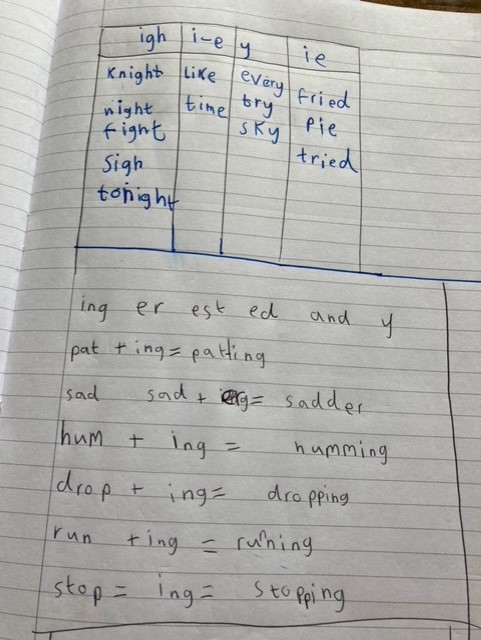 igh i-e y ie
Knight Like every fried
night time try Pie
fight sky tried
Sigh
tonight
ing er est ed and y
pat + ing = patting
sad sad + = sadder
hum + ing = humming
drop + ing = dropping
run + ing = running
stop = ing = stopping